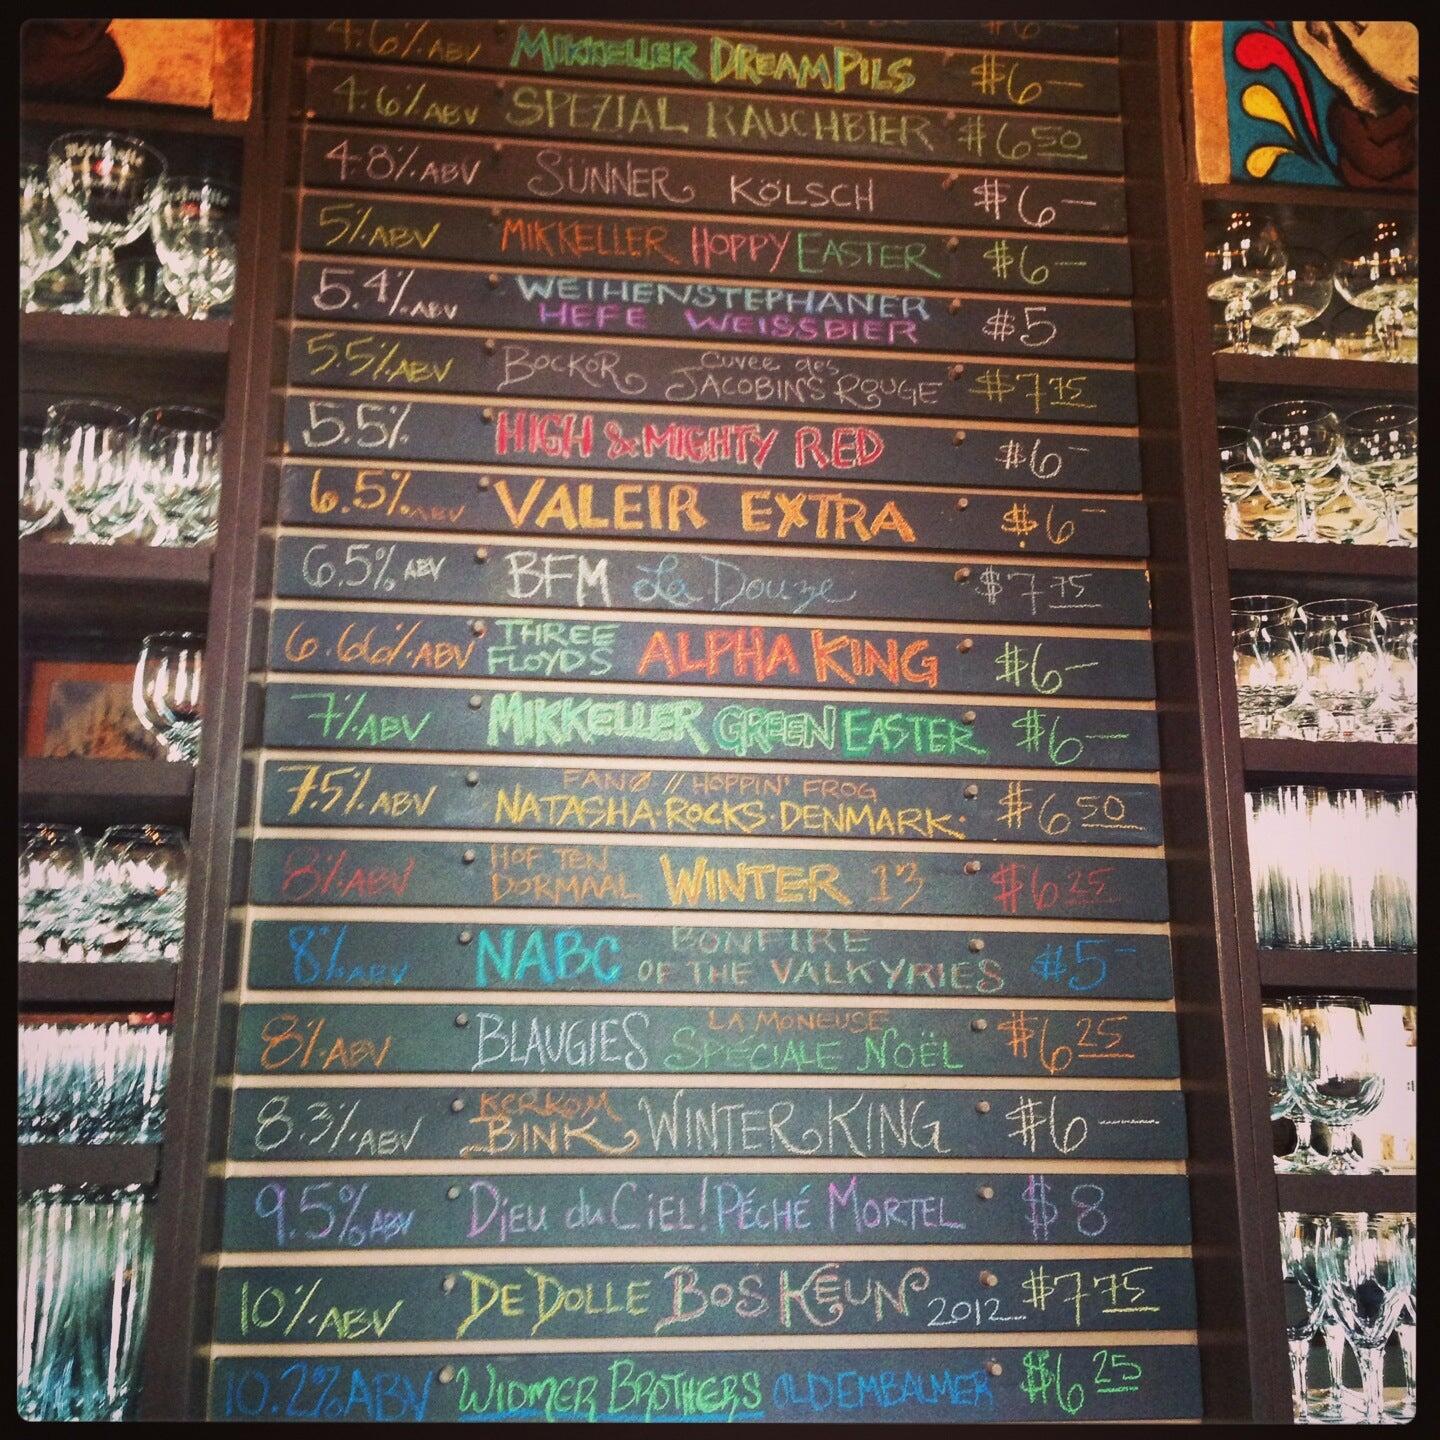 4.6% ABV MIKKELLER DREAM PILS $6—
4.6% ABV SPEZIAL RAUCHBIER $6 50
4.8% ABV SÜNNER KÖLSCH $6—
5% ABV MIKKELLER HOPPY EASTER $6—
5.4% ABV WEIHENSTEPHANER HEFE WEISSBIER $5
5.5% ABV BOCKOR CUVEE des JACOBINS ROUGE $7 75
5.5% HIGH & MIGHTY RED $6—
6.5% ABV VALEIR EXTRA $6—
6.5% ABV BFM La Douze $7 75
6.66% ABV THREE FLOYDS ALPHA KING $6—
7% ABV MIKKELLER GREEN EASTER $6—
7.5% ABV FANØ // HOPPIN' FROG NATASHA·ROCKS·DENMARK· $6 50
8% ABV HOF TEN DORMAAL WINTER 13 $6 25
8% ABV NABC BONFIRE OF THE VALKYRIES $5—
8% ABV BLAUGIES LA MONEUSE SPÉCIALE NOËL $6 25
8.3% ABV KERKOM BINK WINTER KING $6—
9.5% ABV DIEU du CIEL! PÉCHÉ MORTEL $8
10% ABV DE DOLLE BOS KEUN 2012 $7 75
10.2% ABV WIDMER BROTHERS OLD EMBALMER $6 25